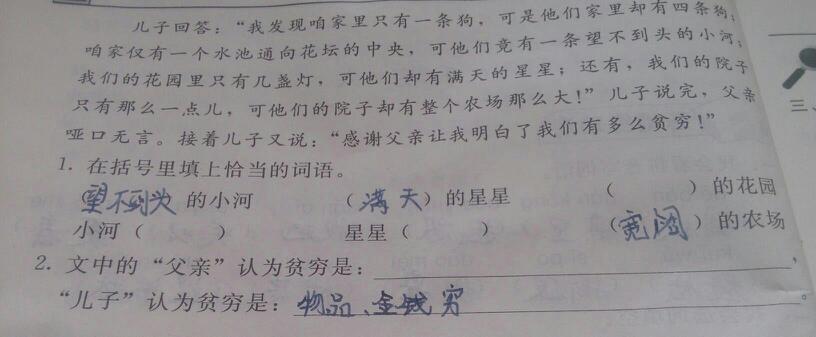 儿子回答：“我发现咱家里只有一条狗，可是他们家里却有四条狗；
咱家仅有一个水池通向花坛的中央，可他们竟有一条望不到头的小河；
我们的花园里只有几盏灯，可他们却有满天的星星；还有，我们的院子
只有那么一点儿，可他们的院子却有整个农场那么大！”儿子说完，父亲
哑口无言。接着儿子又说：“感谢父亲让我明白了我们有多么贫穷！”
三、
1. 在括号里填上恰当的词语。
（望不到头）的小河 （满天）的星星 （ ）的花园
小河（ ） 星星（ ） （宽阔）的农场
2. 文中的“父亲”认为贫穷是：，
“儿子”认为贫穷是：物品、金钱穷。